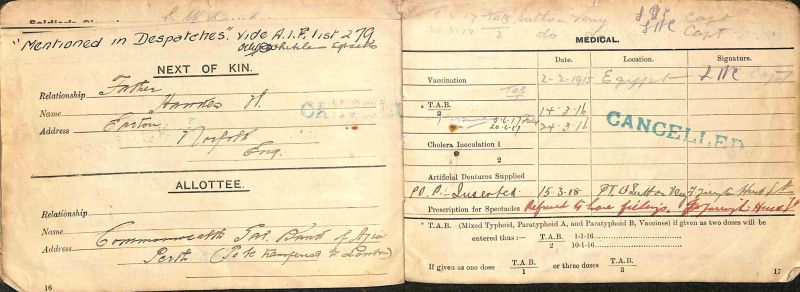 "Mentioned in Despatches". vide A.I.F. list 279
NEXT OF KIN.
Relationship Father
Name Hawkes H.
CANCELLED
Address Easton
Norfolk
Eng.
ALLOTTEE.
Relationship
Name Commonwealth Sav. Bank of Asia
Address Perth (To be transferred to London)
16
5.6.17 TAB Sutton Veny Capt
20.6.17 2 do Capt
MEDICAL.
Date. Location. Signature.
Vaccination 2-2-1915 Egypt Capt
TAB
T.A.B. 14.3.16
2 5.6.17
20.6.17 24.3.16
CANCELLED
Cholera Inoculation 1
2
Artificial Dentures Supplied
P.O.P. Inserted. 15.3.18
Prescription for Spectacles Refused to have fillings.
T.A.B. (Mixed Typhoid, Paratyphoid A, and Paratyphoid B, Vaccines) if given as two doses will be
entered thus:— T.A.B. 1-1-16
2 10-1-16
If given as one dose T.A.B. or three doses T.A.B.
1 3
17